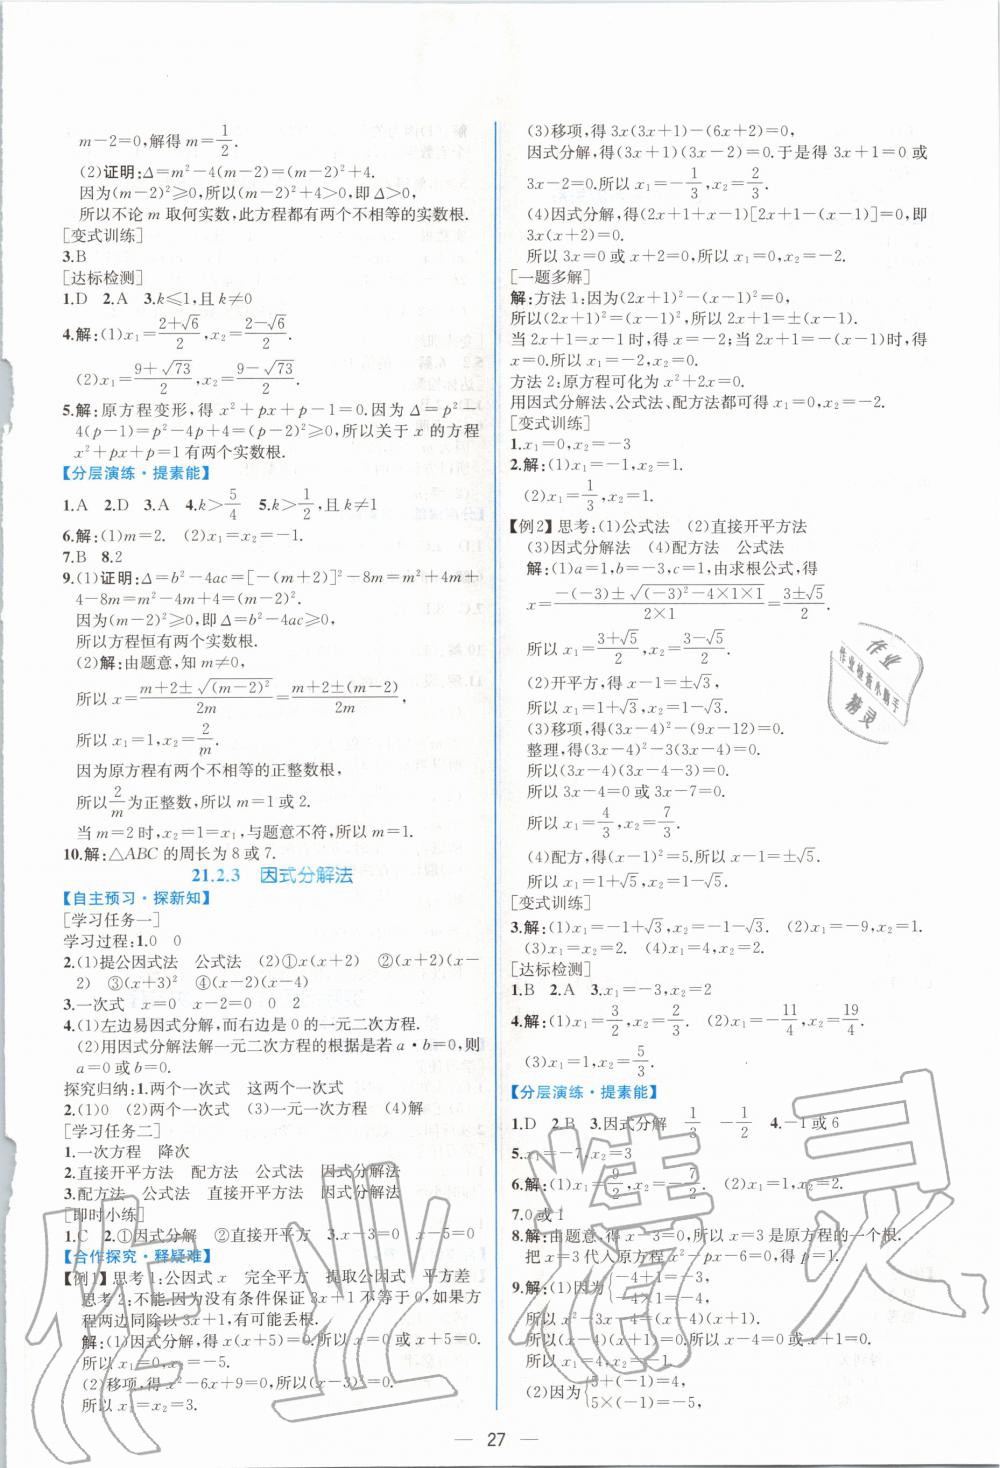 m－2=0,解得 m=1/2.
(2)证明:Δ=m²－4(m－2)=(m－2)²+4.
因为(m－2)²≥0,所以(m－2)²+4>0,即 Δ>0,
所以不论 m 取何实数,此方程都有两个不相等的实数根.
[变式训练]
3.B
[达标检测]
1.D 2.A 3.k≤1,且 k≠0
4.解:(1)x₁=(2+√6)/2,x₂=(2－√6)/2.
(2)x₁=(9+√73)/2,x₂=(9－√73)/2.
5.解:原方程变形,得 x²+px+p－1=0.因为 Δ=p²－
4(p－1)=p²－4p+4=(p－2)²≥0,所以关于 x 的方程
x²+px+p=1有两个实数根.
【分层演练·提素能】
1.A 2.D 3.A 4.k>5/4 5.k>1/2,且 k≠1
6.解:(1)m=2. (2)x₁=x₂=－1.
7.B 8.2
9.(1)证明:Δ=b²－4ac=[－(m+2)]²－8m=m²+4m+
4－8m=m²－4m+4=(m－2)².
因为(m－2)²≥0,即 Δ=b²－4ac≥0,
所以方程恒有两个实数根.
(2)解:由题意,知 m≠0,
所以 x=(m+2±√(m－2)²)/2m=(m+2±(m－2))/2m,
所以 x₁=1,x₂=2/m.
因为原方程有两个不相等的正整数根,
所以2/m为正整数,所以 m=1或2.
当 m=2时,x₂=1=x₁,与题意不符,所以 m=1.
10.解:△ABC 的周长为8或7.
21.2.3 因式分解法
【自主预习·探新知】
[学习任务一]
学习过程:1.0 0
2.(1)提公因式法 公式法 (2)①x(x+2) ②(x+2)(x－
2) ③(x+3)² ④(x－2)(x－4)
3.一次式 x=0 x－2=0 0 2
4.(1)左边易因式分解,而右边是0的一元二次方程.
(2)用因式分解法解一元二次方程的根据是若 a·b=0,则
a=0或 b=0.
探究归纳:1.两个一次式 这两个一次式
2.(1)0 (2)一次式 (3)一元一次方程 (4)解
[学习任务二]
1.一次方程 降次
2.直接开平方法 配方法 公式法 因式分解法
3.配方法 公式法 直接开平方法 因式分解法
[即时小练]
1.C 2.①因式分解 ②直接开平方 3.x－3=0 x－5=0
【合作探究·释疑难】
【例1】思考1:公因式 x 完全平方 提取公因式 平方差
思考2:不能,因为没有条件保证3x+1不等于0,如果方
程两边同除以3x+1,有可能丢根.
解:(1)因式分解,得 x(x+5)=0.所以 x=0或 x+5=0.
所以 x₁=0,x₂=－5.
(2)移项,得 x²－6x+9=0.所以(x－3)²=0.
所以 x₁=x₂=3.
(3)移项,得3x(3x+1)－(6x+2)=0,
因式分解,得(3x+1)(3x－2)=0.于是得3x+1=0或
3x－2=0.所以 x₁=－1/3,x₂=2/3.
(4)因式分解,得(2x+1+x－1)[2x+1－(x－1)]=0,即
3x(x+2)=0.
所以3x=0或 x+2=0,所以 x₁=0,x₂=－2.
[一题多解]
解:方法1:因为(2x+1)²－(x－1)²=0,
所以(2x+1)²=(x－1)²,所以2x+1=±(x－1).
当2x+1=x－1时,得 x=－2;当2x+1=－(x－1)时,得
x=0.所以 x₁=－2,x₂=0.
方法2:原方程可化为 x²+2x=0.
用因式分解法、公式法、配方法都可得 x₁=0,x₂=－2.
[变式训练]
1.x₁=0,x₂=－3
2.解:(1)x₁=－1,x₂=1.
(2)x₁=1/3,x₂=1.
【例2】思考:(1)公式法 (2)直接开平方法
(3)因式分解法 (4)配方法 公式法
解:(1)a=1,b=－3,c=1,由求根公式,得
x=(－(－3)±√((－3)²－4×1×1))/(2×1)=(3±√5)/2.
所以 x₁=(3+√5)/2,x₂=(3－√5)/2.
(2)开平方,得 x－1=±√3,
所以 x₁=1+√3,x₂=1－√3.
(3)移项,得(3x－4)²－(9x－12)=0.
整理,得(3x－4)²－3(3x－4)=0.
所以(3x－4)(3x－4－3)=0.
所以3x－4=0或3x－7=0.
所以 x₁=4/3,x₂=7/3.
(4)配方,得(x－1)²=5.所以 x－1=±√5.
所以 x₁=1+√5,x₂=1－√5.
[变式训练]
3.解:(1)x₁=－1+√3,x₂=－1－√3. (2)x₁=－9,x₂=1.
(3)x₁=x₂=2. (4)x₁=4,x₂=2.
[达标检测]
1.B 2.A 3.x₁=－3,x₂=2
4.解:(1)x₁=3/2,x₂=2/3. (2)x₁=－11/4,x₂=19/4.
(3)x₁=1,x₂=5/3.
【分层演练·提素能】
1.D 2.B 3.因式分解 1/3 －1/2 4.－1或6
5.x₁=－7,x₂=3
6.解:(1)x₁=9/2,x₂=－7/2. (2)x₁=1,x₂=2.
7.0或1
8.解:由题意,得 x－3=0,所以 x=3是原方程的一个根.
把 x=3代入原方程 x²－px－6=0,得 p=1.
9.解:(1)因为{－4+1=－3,
－4×1=－4,
所以 x²－3x－4=(x－4)(x+1).
所以(x－4)(x+1)=0.所以 x－4=0或 x+1=0.
所以 x₁=4,x₂=－1.
(2)因为{5+(－1)=4,
5×(－1)=－5,
27
作业
作业检查小助手
精灵
作业精灵